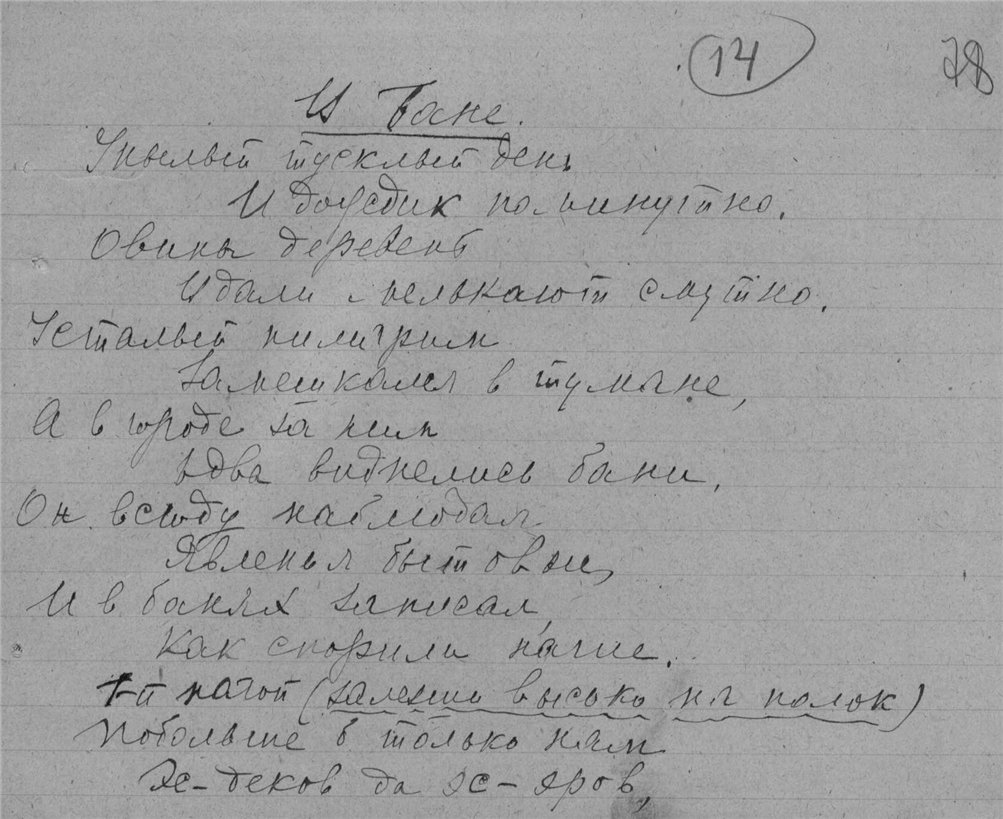 14
78
В бане.
Унылый тусклый день
И дождик поминутно.
Овины деревень
Вдали мелькают смутно.
Усталый пилигрим
Замешкался в тумане,
А в городе за ним
Едва виднелись бани.
Он всюду наблюдал
Явленья бытовые,
И в банях записал,
Как спорили нагие.
1-й нагой (залезши высоко на полок)
Побольше б только нам
Эс-деков да эс-эров,